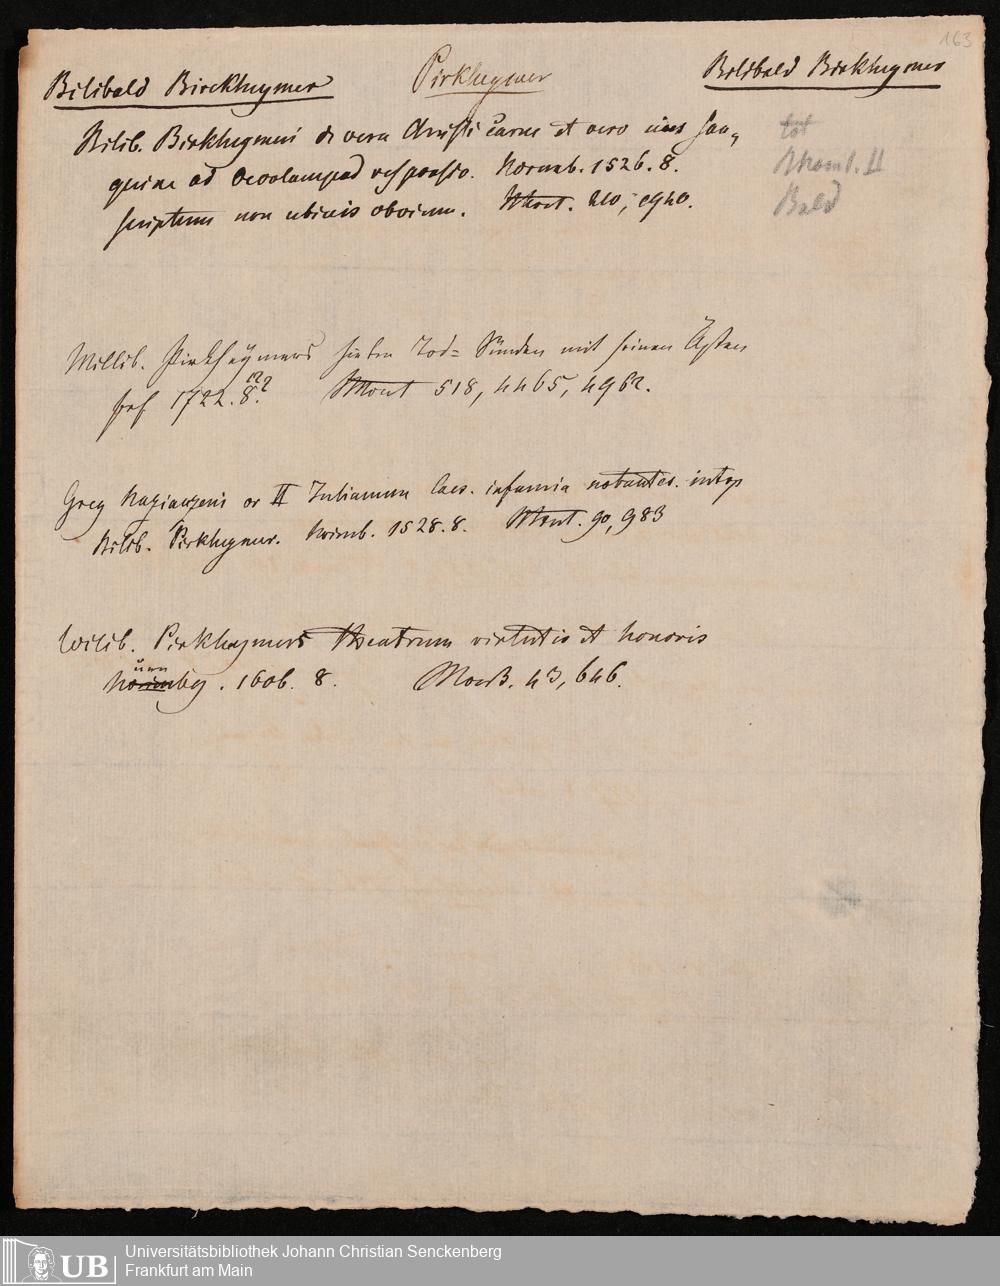 163
Bilibald Birckheymer
Pirkheymer
Bilibald Birkheymer
Bilib. Birkheymeri de vera Christi carne et vero eius San„
guine ad Oecolampad responsio. Noremb. 1526. 8.
scriptum non ubivis obvium. Mont.
tot
II
Bald
Willib. Pirkheÿmers sieben Tod= Sünden mit seinen Ästen
1722. 8. Mont 518, 4465, 4962.
Greg Nazianzeni or II Julianum Caes. infamia notantes. intep
Bilib. Pirkheymer. Norimb. 1528. 8. Mont. 90, 983
Wilib. Pirkheymers theatrum virtutis et honoris
urn
Nornbg. 1606. 8. 43, 646.
Universitätsbibliothek Johann Christian Senckenberg
UB Frankfurt am Main